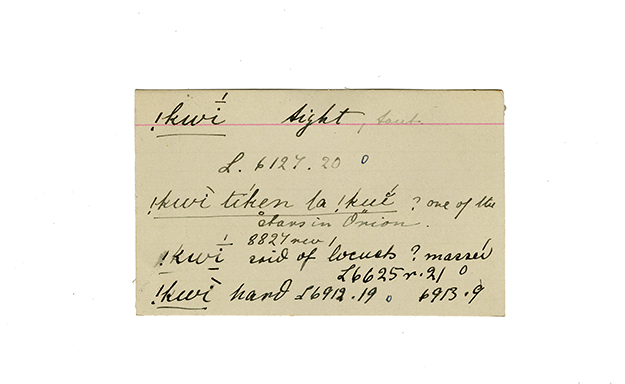 !kwi tight, taut.
L. 6127. 20
!kwi tiken la !kué ? one of the
stars in Orion.
8827 rev
!kwi said of locusts ? massed
L6625 r. 21
!kwi hard L6912. 19 6913. 9